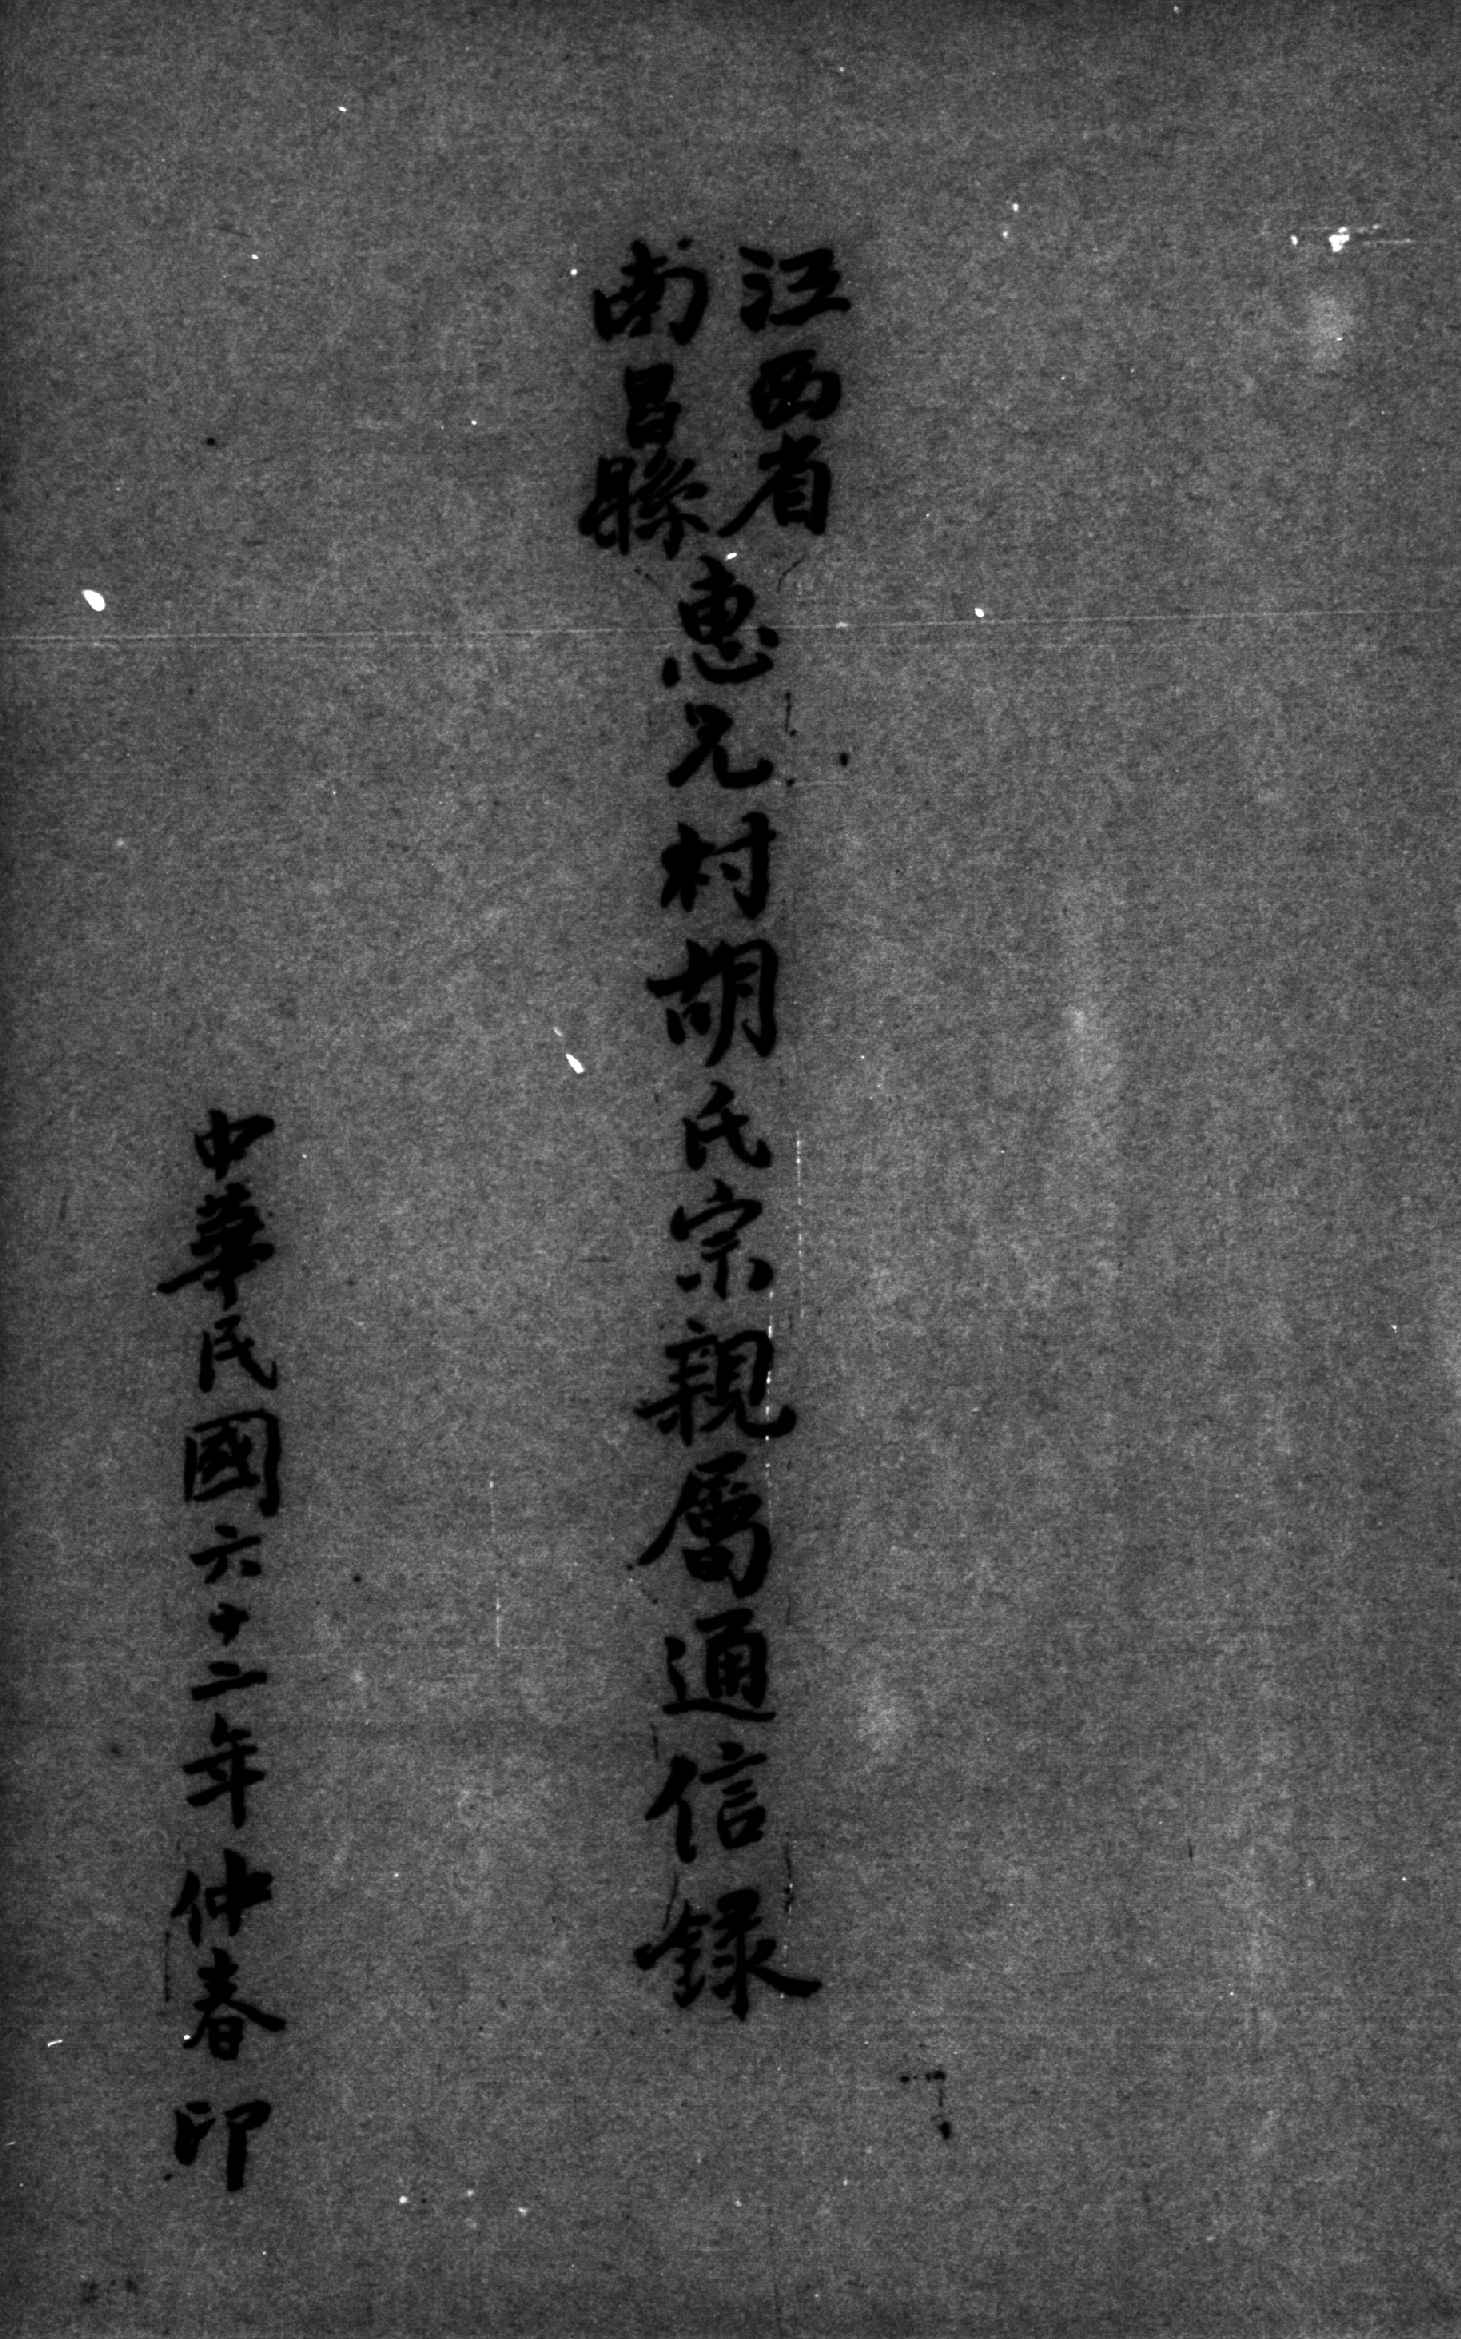 江西省
南昌縣
惠兄村胡氏宗親屬通信錄
中華民國六十二年仲春印